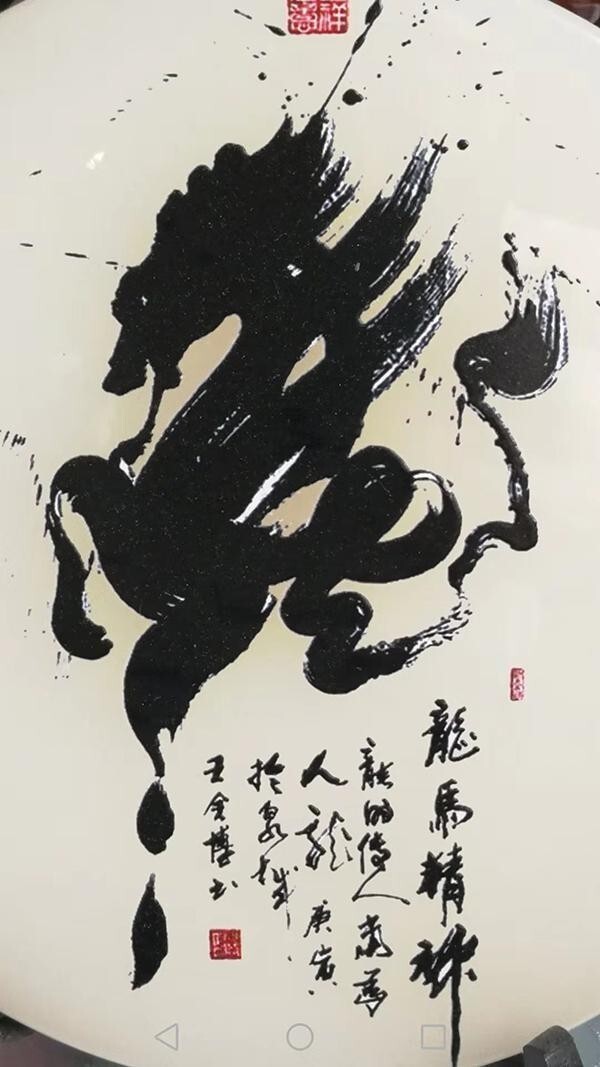 龍馬精神
龍的傳人當為
人龍 庚寅
於泉城
王博书